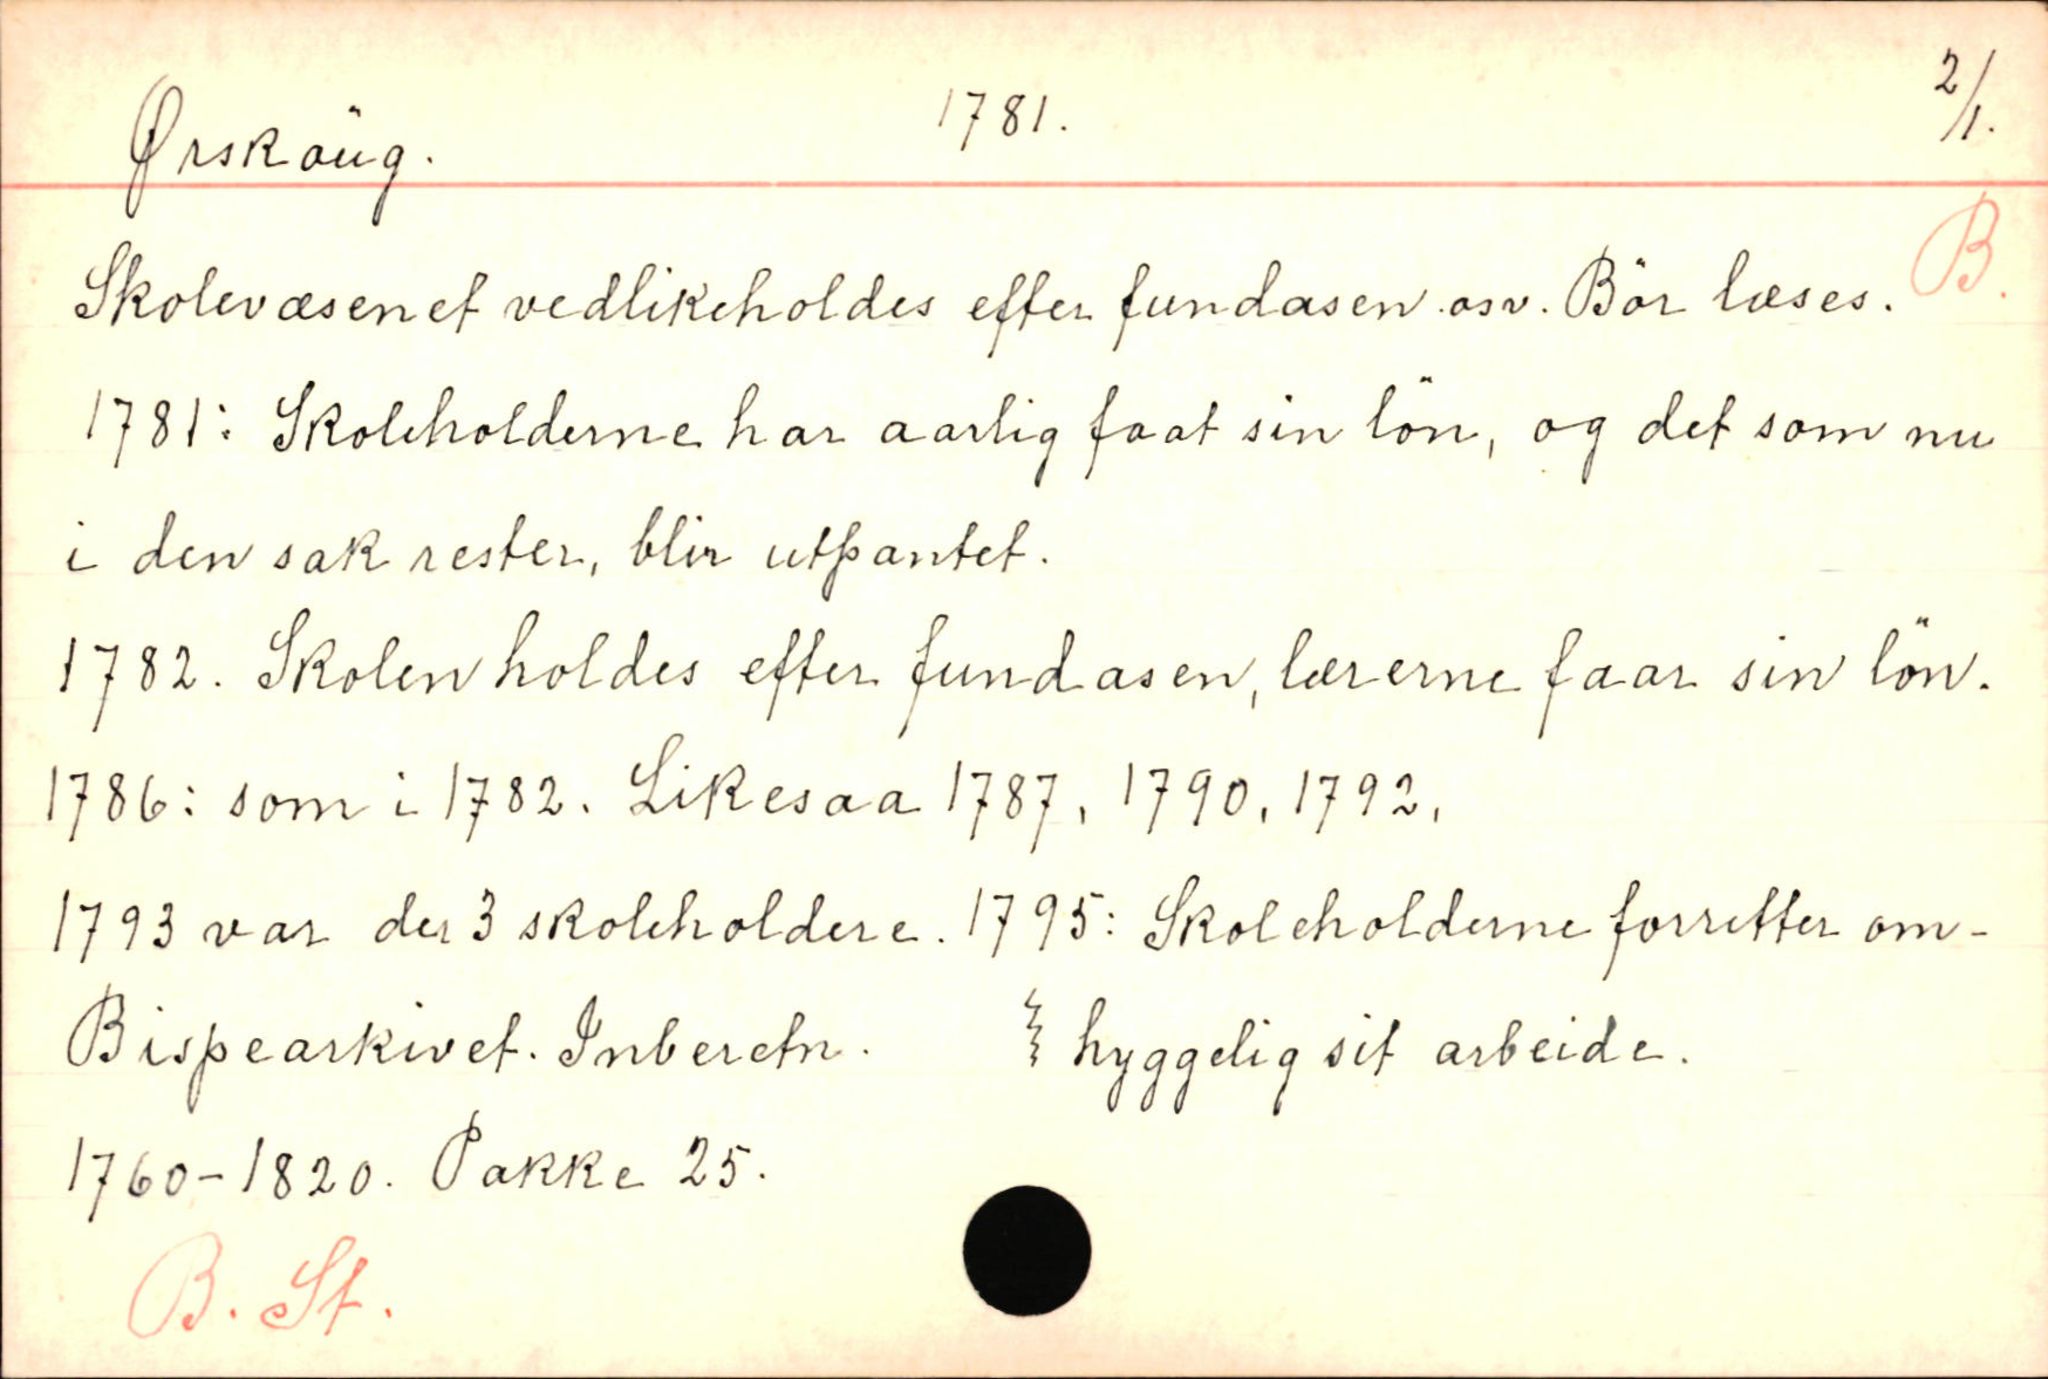 Ørsköug. 1781. 2/1.
B.
Skolevæsenet vedlikeholdes efter fundasen osv. Bör læses.
1781: Skoleholderne har aarlig faat sin lön, og det som nu
i den sak rester, blir utpantet.
1782. Skolen holdes efter fundasen, lærerne faar sin lön.
1786: som i 1782. Likesaa 1787, 1790, 1792,
1793 var der 3 skoleholdere. 1795: Skoleholderne forretter om-
hyggelig sit arbeide.
Bispearkivet. Inberetn.
1760-1820. Pakke 25.
B. St.